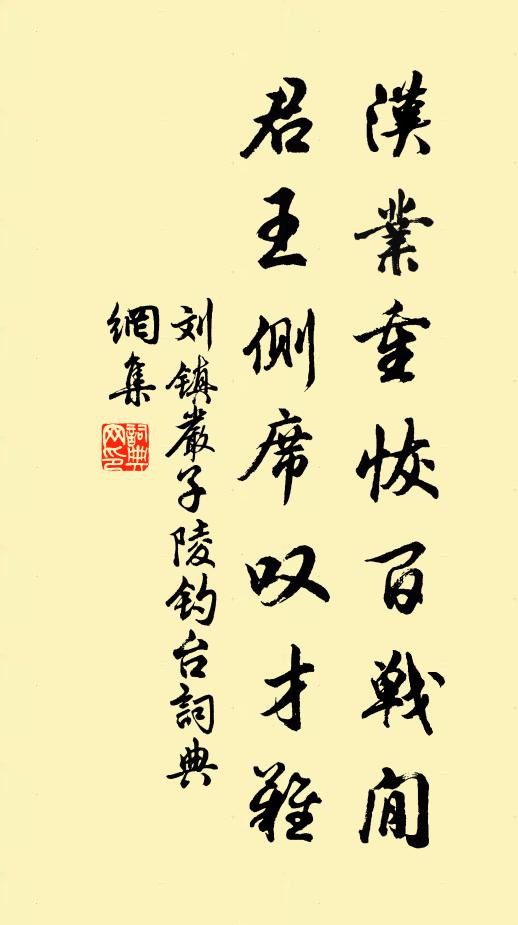 漢業重恢百戦間
君王側席叹才難
刘鎮嚴子陵钓台詞典
網集
詞典
网印